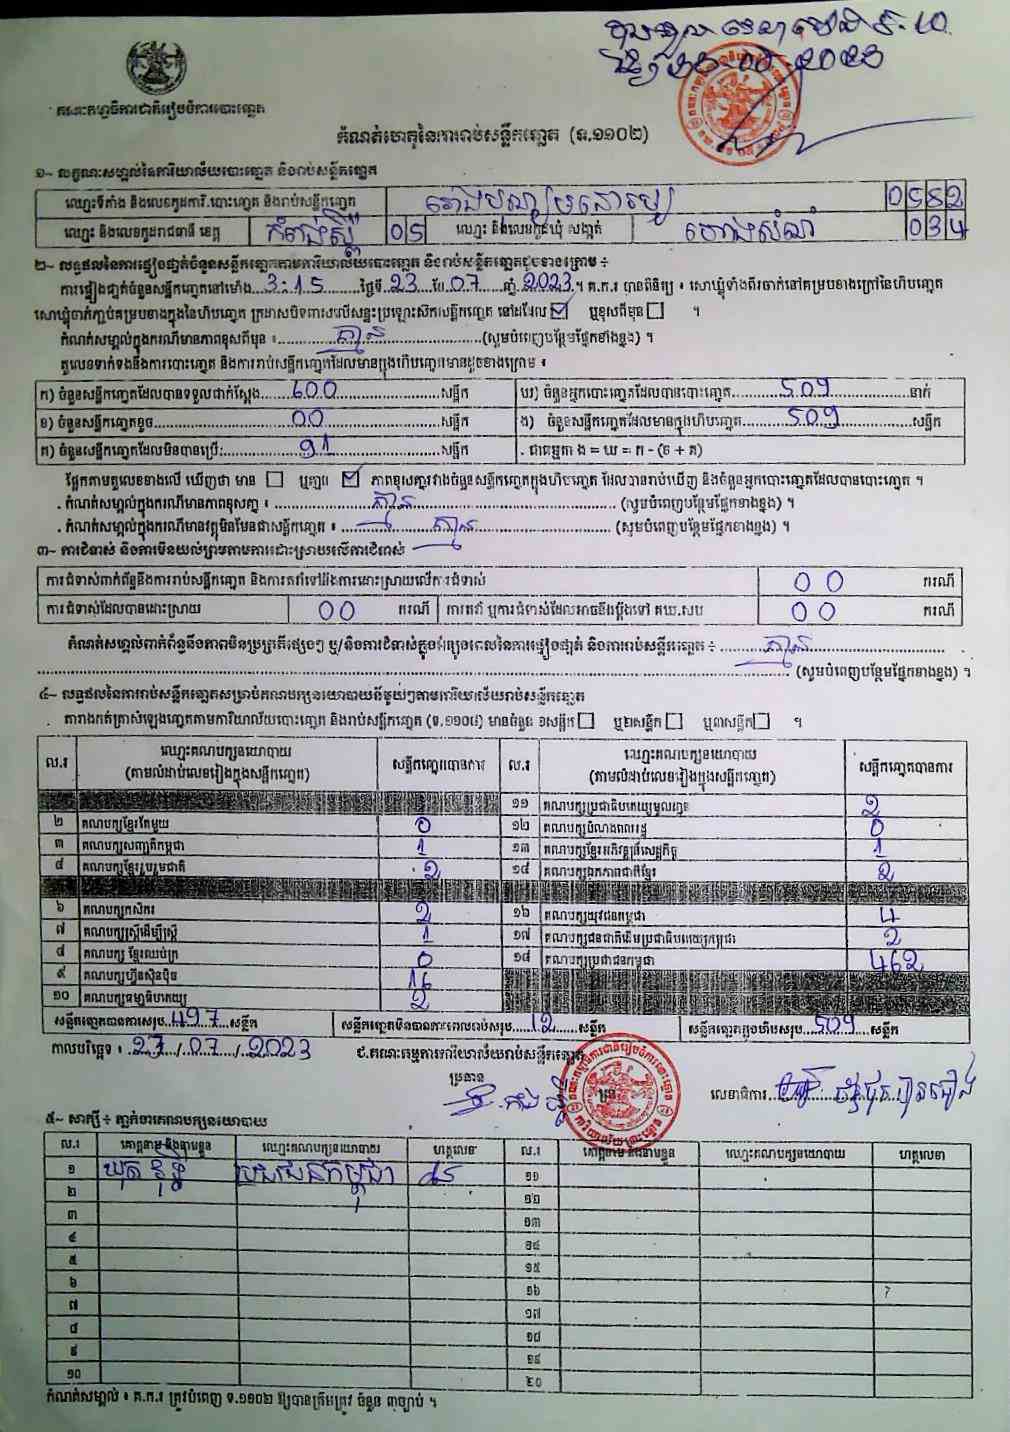 គណៈកម្មាធិការជាតិរៀបចំការបោះឆ្នោត
កំណត់ហេតុនៃការរាប់សន្លឹកឆ្នោត (ទ.១១០២)
១~ លក្ខណៈសម្គាល់នៃការិយាល័យបោះឆ្នោត និងរាប់សន្លឹកឆ្នោត
ឈ្មោះទីតាំង និងលេខកូដការិ.បោះឆ្នោត និងរាប់សន្លឹកឆ្នោត 0582
ឈ្មោះ និងលេខកូដរាជធានី ខេត្ត កំពង់ស្ពឺ 05 ឈ្មោះ និងលេខកូដឃុំ សង្កាត់ 034
២~ លទ្ធផលនៃការផ្ទៀងផ្ទាត់ចំនួនសន្លឹកឆ្នោតតាមការិយាល័យបោះឆ្នោត និងរាប់សន្លឹកឆ្នោតដូចខាងក្រោម ៖
ការផ្ទៀងផ្ទាត់ចំនួនសន្លឹកឆ្នោតនៅម៉ោង 3:15 ថ្ងៃទី 23 ខែ 07 ឆ្នាំ 2023 ។ គ.ក.រ បានពិនិត្យ ៖ សោឃ្មុំទាំងពីរចាក់នៅគម្របខាងក្រៅនៃហិបឆ្នោត
សោឃ្មុំចាក់ភ្ជាប់គម្របខាងក្នុងនៃហិបឆ្នោត ក្រដាសបិទពាសលើសន្ទះប្រឡោះស៊កសន្លឹកឆ្នោត នៅដដែល ☑ ឬខុសពីមុន ☐ ។
កំណត់សម្គាល់ក្នុងករណីមានភាពខុសពីមុន ៖ គ្មាន (សូមបំពេញបន្ថែមផ្នែកខាងខ្នង) ។
តួលេខទាក់ទងនឹងការបោះឆ្នោត និងការរាប់សន្លឹកឆ្នោតដែលមានក្នុងហិបឆ្នោតមានដូចខាងក្រោម ៖
ក) ចំនួនសន្លឹកឆ្នោតដែលបានទទួលជាក់ស្តែង 600 សន្លឹក ឃ) ចំនួនអ្នកបោះឆ្នោតដែលបានបោះឆ្នោត 509 នាក់
ខ) ចំនួនសន្លឹកឆ្នោតខូច 00 សន្លឹក ង) ចំនួនសន្លឹកឆ្នោតដែលមានក្នុងហិបឆ្នោត 509 សន្លឹក
គ) ចំនួនសន្លឹកឆ្នោតដែលមិនបានប្រើ: 91 សន្លឹក . ជាធម្មតា ង = ឃ = ក - (ខ + គ)
ផ្អែកតាមតួលេខខាងលើ ឃើញថា មាន ☐ ឬគ្មាន ☑ ភាពខុសគ្នារវាងចំនួនសន្លឹកឆ្នោតក្នុងហិបឆ្នោត ដែលបានរាប់ឃើញ និងចំនួនអ្នកបោះឆ្នោតដែលបានបោះឆ្នោត ។
. កំណត់សម្គាល់ក្នុងករណីមានភាពខុសគ្នា ៖ គ្មាន (សូមបំពេញបន្ថែមផ្នែកខាងខ្នង) ។
. កំណត់សម្គាល់ក្នុងករណីមានវត្ថុមិនមែនជាសន្លឹកឆ្នោត ៖ គ្មាន (សូមបំពេញបន្ថែមផ្នែកខាងខ្នង) ។
៣~ ការជំទាស់ និងការមិនយល់ព្រមតាមការដោះស្រាយលើការជំទាស់
ការជំទាស់ពាក់ព័ន្ធនឹងការរាប់សន្លឹកឆ្នោត និងការតវ៉ាទៅនឹងការដោះស្រាយលើការជំទាស់ 00 ករណី
ការជំទាស់ដែលបានដោះស្រាយ 00 ករណី ការតវ៉ា ឬការជំទាស់ដែលអាចនឹងប្តឹងទៅ គឃ.សប 00 ករណី
កំណត់សម្គាល់ពាក់ព័ន្ធនឹងភាពមិនប្រក្រតីផ្សេងៗ ឬ/និងការជំទាស់ក្នុងអំឡុងពេលនៃការផ្ទៀងផ្ទាត់ និងការរាប់សន្លឹកឆ្នោត ៖ គ្មាន
(សូមបំពេញបន្ថែមផ្នែកខាងខ្នង) ។
៤~ លទ្ធផលនៃការរាប់សន្លឹកឆ្នោតសម្រាប់គណបក្សនយោបាយនីមួយៗតាមការិយាល័យរាប់សន្លឹកឆ្នោត
តារាងកត់ត្រាសំឡេងឆ្នោតតាមការិយាល័យបោះឆ្នោត និងរាប់សន្លឹកឆ្នោត (ទ.១១០៤) មានចំនួន ១សន្លឹក ☐ ឬ២សន្លឹក ☐ ឬ៣សន្លឹក ☐ ។
ល.រ ឈ្មោះគណបក្សនយោបាយ (តាមលំដាប់លេខរៀងក្នុងសន្លឹកឆ្នោត) សន្លឹកឆ្នោតបានការ ល.រ ឈ្មោះគណបក្សនយោបាយ (តាមលំដាប់លេខរៀងក្នុងសន្លឹកឆ្នោត) សន្លឹកឆ្នោតបានការ
១១ គណបក្សប្រជាធិបតេយ្យមូលដ្ឋាន 2
២ គណបក្សខ្មែរតែមួយ 0 ១២ គណបក្សដំណងពលរដ្ឋ 0
៣ គណបក្សសញ្ជាតិកម្ពុជា 1 ១៣ គណបក្សខ្មែរអភិវឌ្ឍន៍សេដ្ឋកិច្ច 1
៤ គណបក្សខ្មែររួបរួមជាតិ 2 ១៤ គណបក្សឯកភាពជាតិខ្មែរ 2
៦ គណបក្សកសិករ 2 ១៦ គណបក្សយុវជនកម្ពុជា 4
៧ គណបក្សស្ត្រីដើម្បីស្ត្រី 1 ១៧ គណបក្សជនជាតិដើមប្រជាធិបតេយ្យកម្ពុជា 2
៨ គណបក្ស ខ្មែរឈប់ក្រ 0 ១៨ គណបក្សប្រជាជនកម្ពុជា 462
៩ គណបក្សហ្វ៊ុនស៊ិនប៉ិច 16
១០ គណបក្សធម្មាធិបតេយ្យ 2
សន្លឹកឆ្នោតបានការសរុប 497 សន្លឹក សន្លឹកឆ្នោតមិនបានការពេលរាប់សរុប 12 សន្លឹក សន្លឹកឆ្នោតក្នុងហិបសរុប 509 សន្លឹក
កាលបរិច្ឆេទ ៖ 27/07/2023 ជ.គណៈកម្មការការិយាល័យរាប់សន្លឹកឆ្នោត
ប្រធាន លេខាធិការ
៥~ សាក្សី ៖ ភ្នាក់ងារគណបក្សនយោបាយ
ល.រ គោត្តនាម និងនាមខ្លួន ឈ្មោះគណបក្សនយោបាយ ហត្ថលេខា ល.រ គោត្តនាម និងនាមខ្លួន ឈ្មោះគណបក្សនយោបាយ ហត្ថលេខា
១ ប្រជាជនកម្ពុជា ១១
២ ១២
៣ ១៣
៤ ១៤
៥ ១៥
៦ ១៦
៧ ១៧
៨ ១៨
៩ ១៩
១០ ២០
កំណត់សម្គាល់ ៖ គ.ក.រ ត្រូវបំពេញ ទ.១១០២ ឱ្យបានត្រឹមត្រូវ ចំនួន ៣ច្បាប់ ។